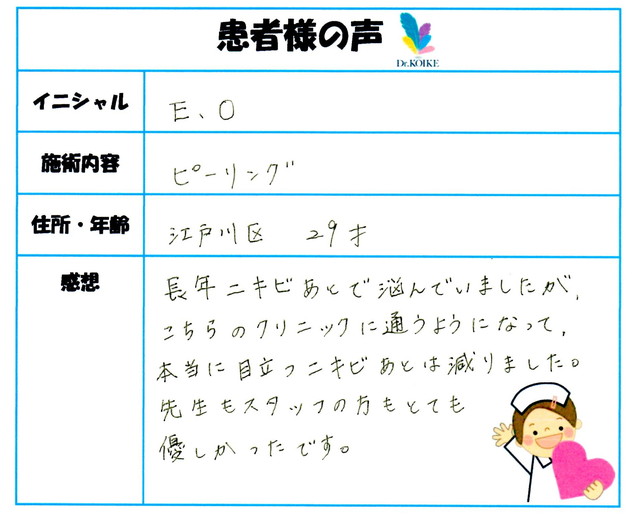 患者様の声
Dr.KOIKE
イニシャル
E、O
施術内容
ピーリング
住所・年齢
江戸川区 29才
感想
長年ニキビあとで悩んでいましたが、
こちらのクリニックに通うようになって、
本当に目立つニキビあとは減りました。
先生もスタッフの方もとても
優しかったです。